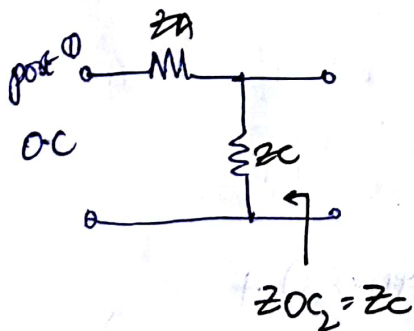 ZA
port ①
O-C
ZC
ZOC₂ = ZC